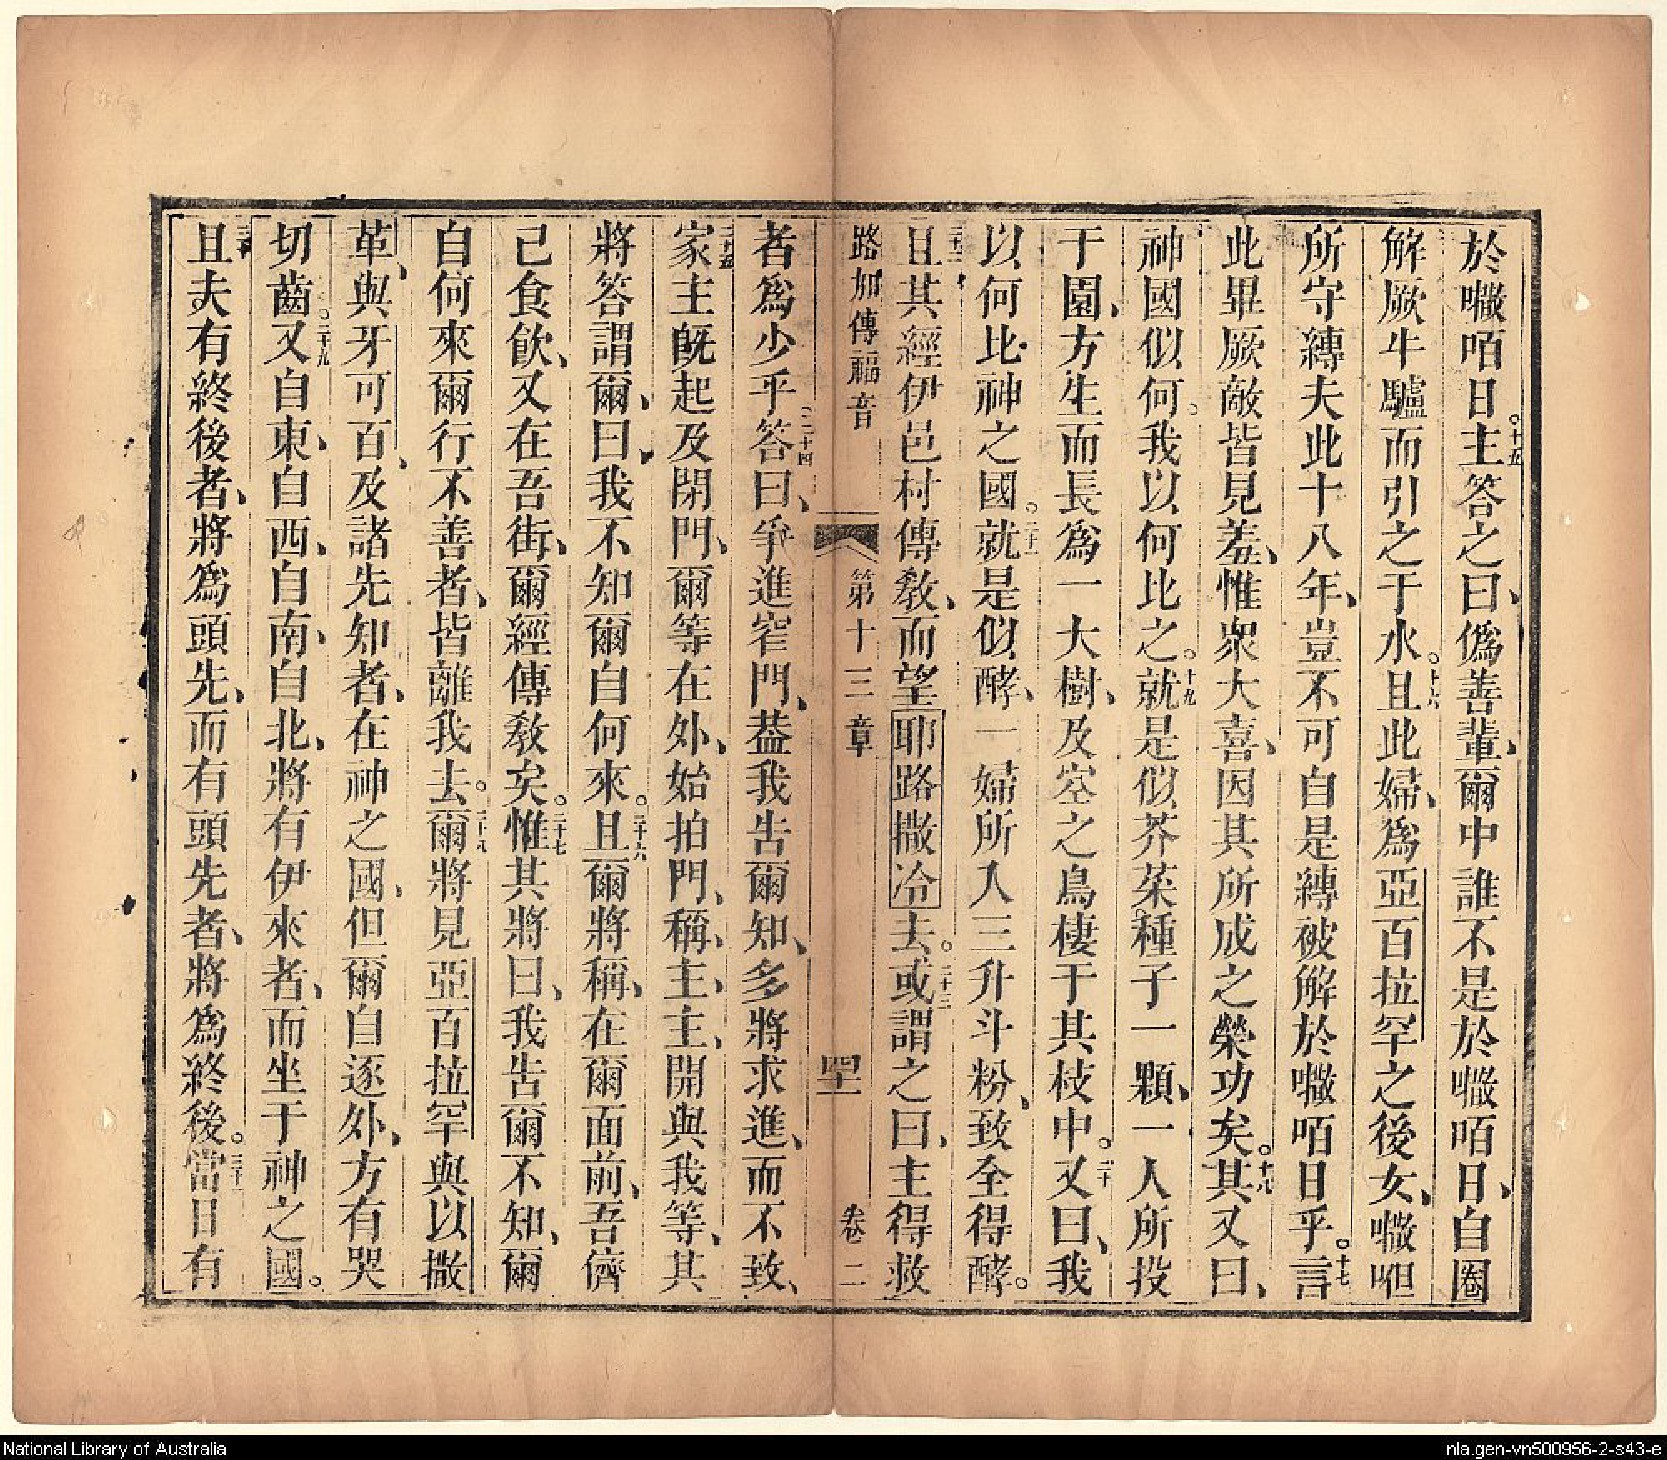 於𡂒咟日。十五主答之曰、僞善輩、爾中誰不是於𡂒咟日、自圈
解厥牛驢而引之于水。十六且此婦、爲亞百拉罕之後女、𡂒呾
所守縛夫此十八年、豈不可自是縛被解於𡂒咟日乎。十七言
此畢厥敵皆見羞、惟眾大喜、因其所成之榮功矣。十八其又曰、
神國似何。我以何比之。十九就是似芥菜種子一顆、一人所投
于園、方生而長爲一大樹、及空之鳥棲于其枝中。二十又曰、我
以何比神之國。二十一就是似酵、一婦所入三升斗粉、致全得酵。
二十二且其經伊邑村傳教、而望耶路撒冷去。二十三或謂之曰、主得救
路加傳福音 第十三章 四十一 卷二
者爲少乎。二十四答曰、爭進窄門、葢我告爾知、多將求進、而不致、
二十五家主旣起及閉門、爾等在外、始拍門、稱、主、主、開與我等、其
將答謂爾、曰、我不知爾自何來。二十六且爾將稱、在爾面前、吾儕
己食飲、又在吾街、爾經傳敎矣。二十七惟其將曰、我告爾不知、爾
自何來爾行不善者、皆離我去。二十八爾將見亞百拉罕與以撒
革、與牙可百、及諸先知者、在神之國、但爾自逐外、方有哭
切齒。二十九又自東、自西、自南、自北、將有伊來者、而坐于神之國。
三十且夫有終後者、將爲頭先、而有頭先者、將爲終後。三十一當日有
National Library of Australia
nla.gen-vn500956-2-s43-e